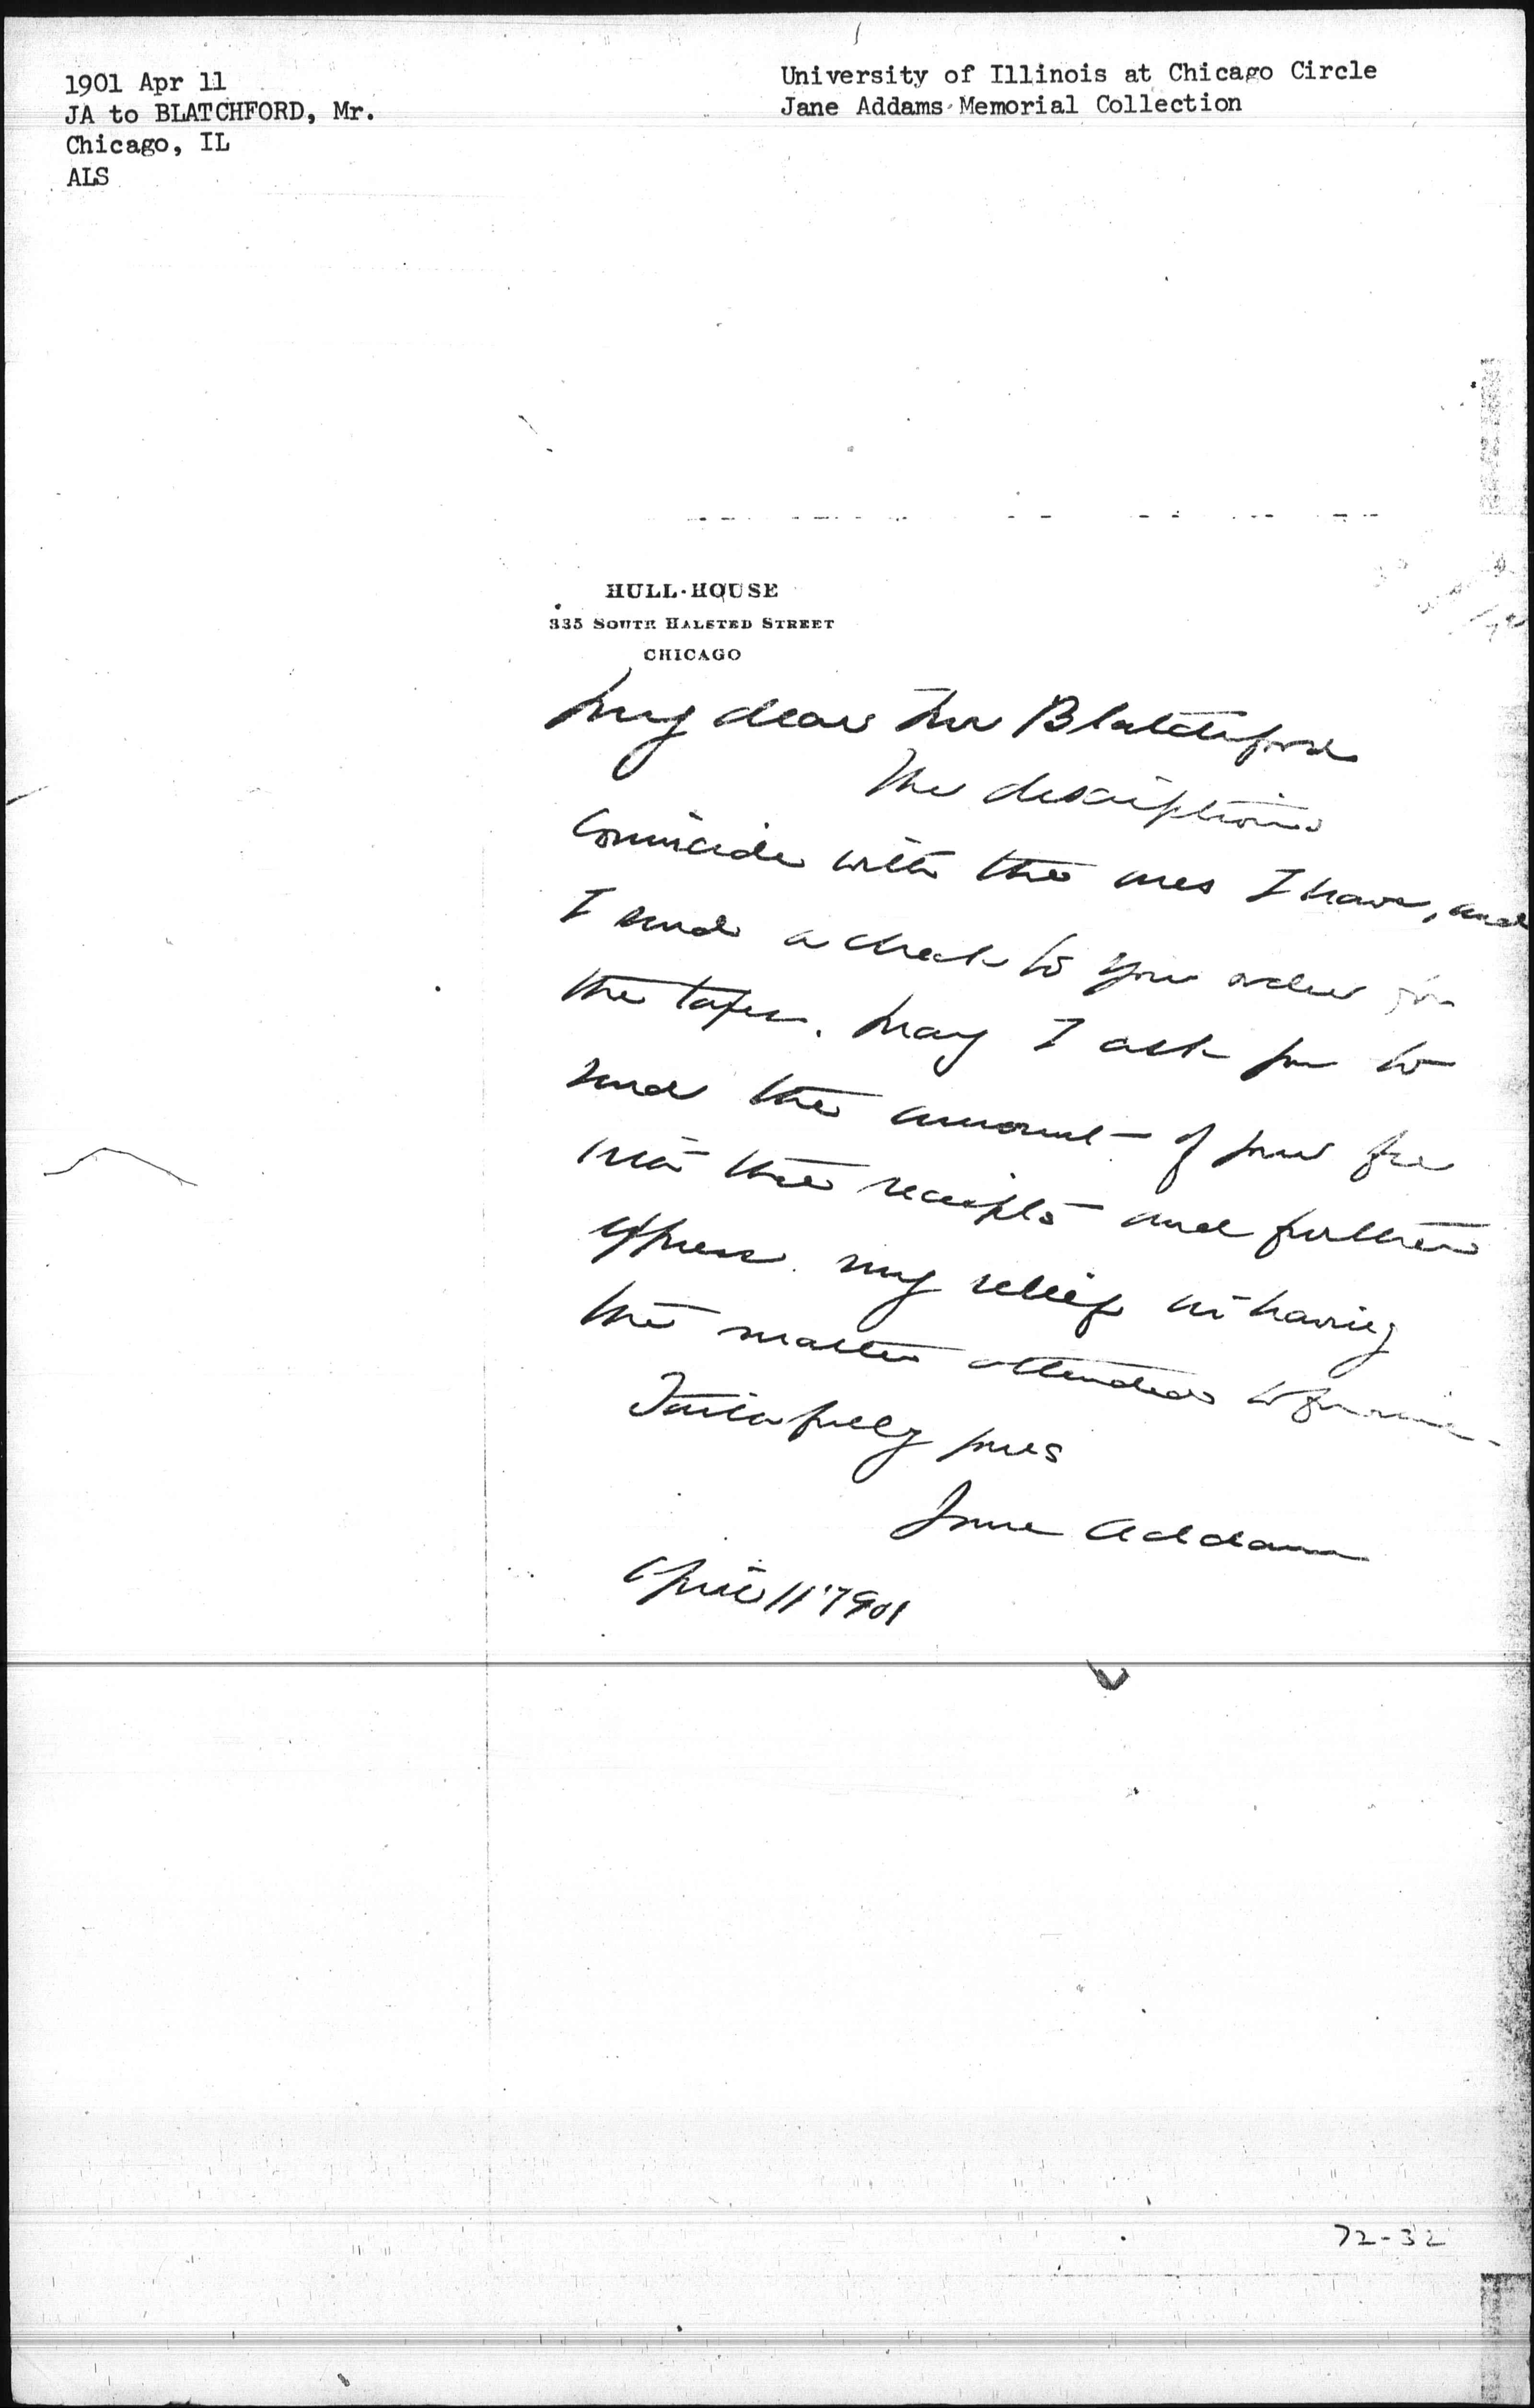 1901 Apr 11
JA to BLATCHFORD, Mr.
Chicago, IL
ALS
University of Illinois at Chicago Circle
Jane Addams Memorial Collection
HULL-HOUSE
335 SOUTH HALSTED STREET
CHICAGO
My dear Mr Blatchford
The descriptions
coincide with the ones I have, and
I send a check to your order for
the taxes. May I ask you to
send the amount of your fee
with the receipts and further
express my relief in having
the matter attended to
Faithfully yours
Jane Addams
April 11" 1901
72-32